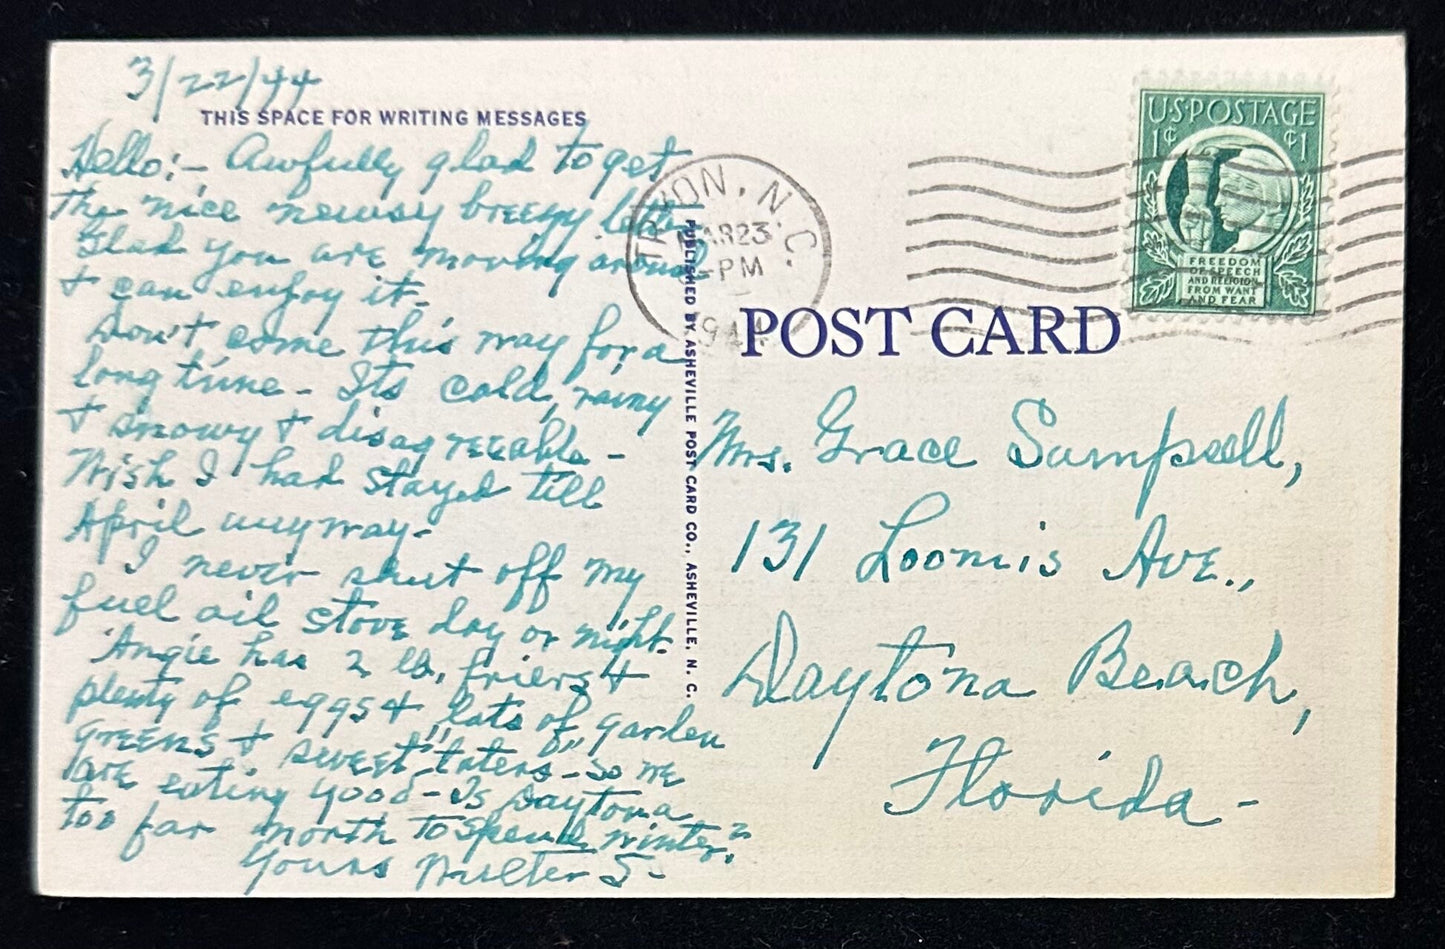 3/22/44
THIS SPACE FOR WRITING MESSAGES
Hello:- Awfully glad to get
the nice newsy breezy letter
Glad you are moving around
+ can enjoy it-
Don't come this way for a
long time - Its cold, rainy
+ snowy + disagreeable -
Wish I had stayed till
April anyway-
I never shut off my
fuel oil stove day or night.
Angie has 2 lb. friers +
plenty of eggs + "lots of" garden
greens + sweet "taters - so we
are eating good - Is Daytona
too far north to spend winter?
Yours Walter S-
PUBLISHED BY ASHEVILLE POST CARD CO., ASHEVILLE, N. C.
TRYON, N.C.
MAR 23
PM
1944
U.S. POSTAGE
1¢ ¢1
FREEDOM
OF SPEECH
AND RELIGION
FROM WANT
AND FEAR
POST CARD
Mrs. Grace Sampsell,
131 Loomis Ave.,
Daytona Beach,
Florida -